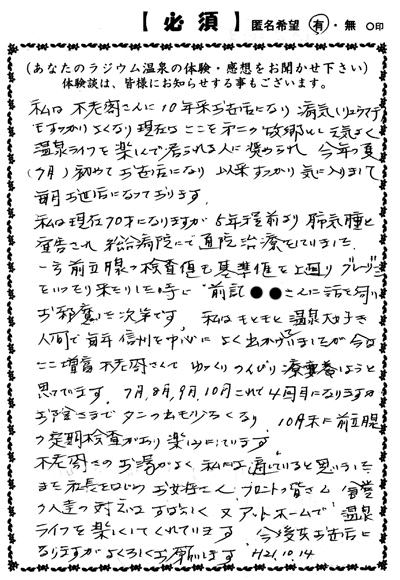 【必須】 匿名希望 有・無 ○印
(あなたのラジウム温泉の体験・感想をお聞かせ下さい)
体験談は、皆様にお知らせする事もございます。
私は不老閣さんに10年来お世話になり 病気(リュウマチ)
もすっかりよくなり現在はここを第二の故郷として元気よく
温泉ライフを楽しんで居られる人に奨められ 今年の夏
(7月)初めてお世話になり 以来すっかり気に入りまして
毎月お世話になっております。
私は現在70才になりますが 5年程前より 肺気腫と
宣告され 総合病院にて通院治療をしていました。
一方前立腺の検査値も基準値を上回り グレーゾーン
をいったり来たりした時に 前記●●さんに話を伺い
お邪魔した次第です。 私はもともと温泉大好き
人間で毎年信州を中心によく出かけていましたが今は
ここ増富不老閣さんで ゆっくりのんびり 療養しようと
思ってます。 7月,8月,9月,10月これで4回目になりますが
お陰さまでタンの出も少なくなり、 10月末に前立腺
の定期検査があり楽しみにしています
不老閣さんのお湯がよく私には適していると思いました
また社長をはじめ お女将さん、フロントの皆さん 食堂
の人達の対応はすばらしく 又アットホームで 温泉
ライフを楽しくしてくれています。 今後共お世話に
なりますがよろしくお願いします H21.10.14